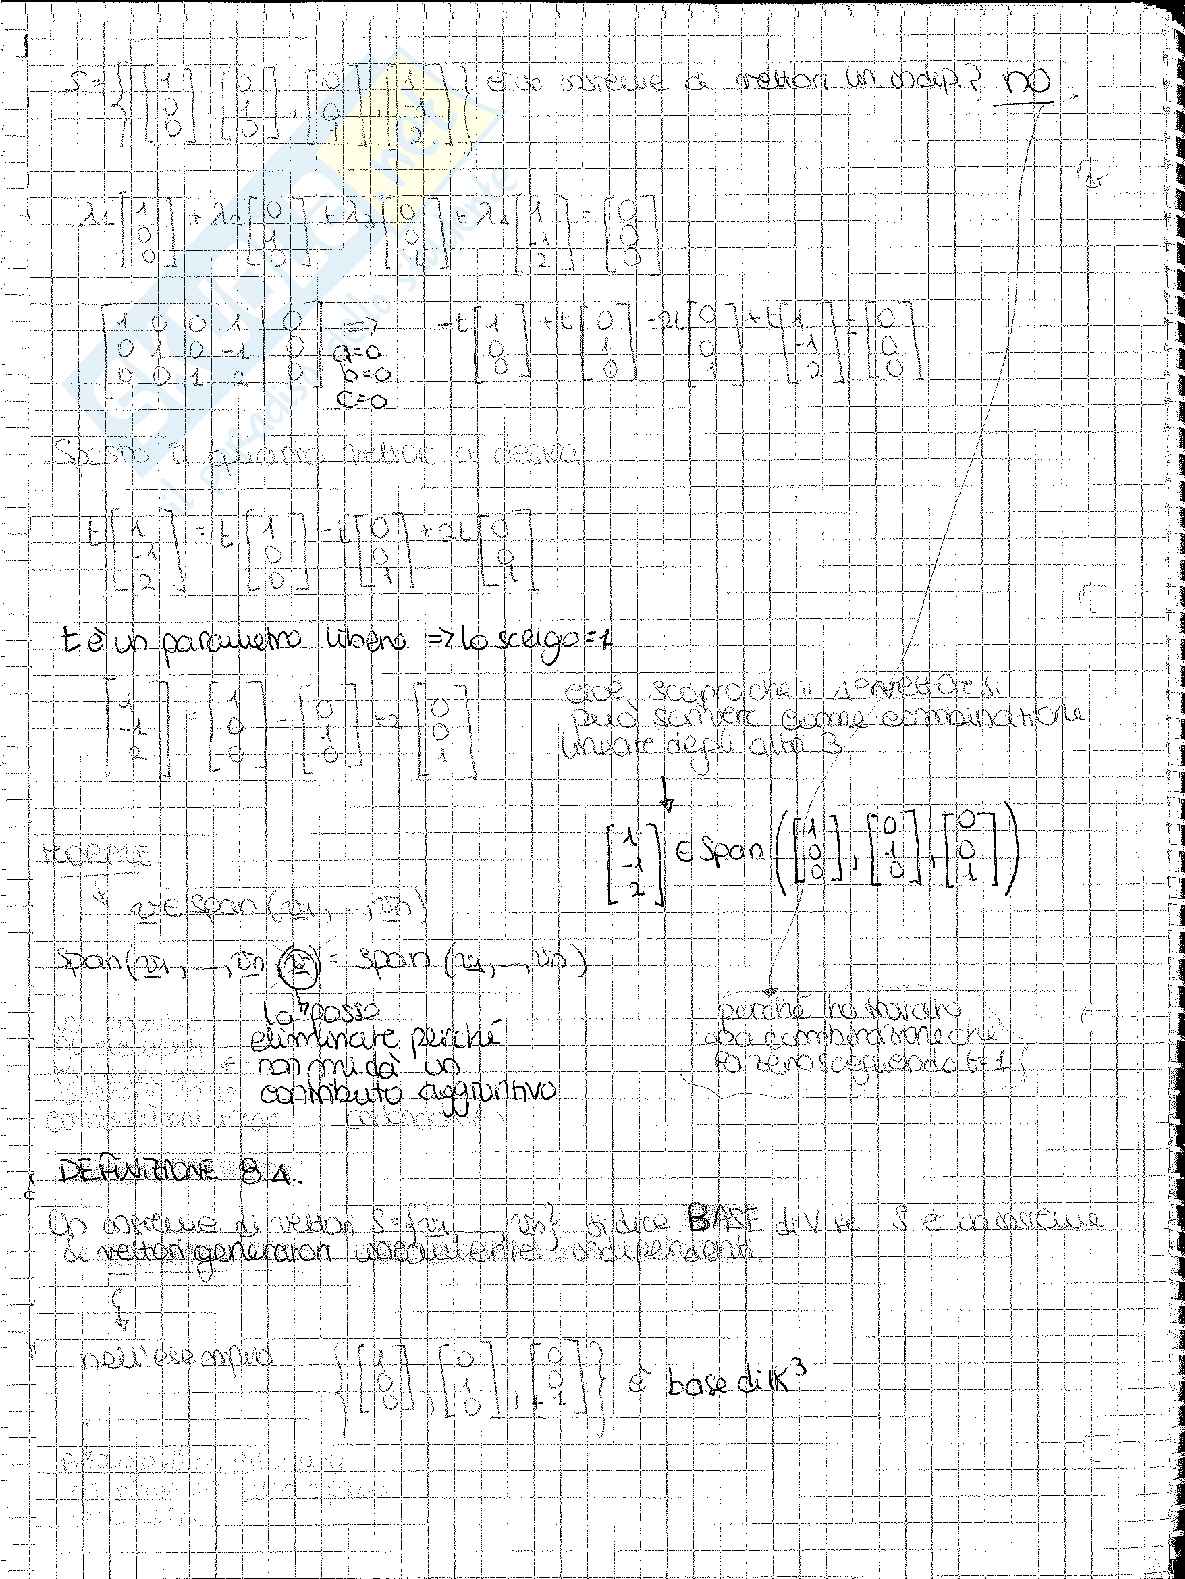 S = { [1 0 0] , [0 1 0] , [0 0 1] , [1 -1 2] } è un insieme di vettori lin indip? no
λ1 [1 0 0] + λ2 [0 1 0] + λ3 [0 0 1] + λ4 [1 -1 2] = [0 0 0]
[1 0 0 1 | 0
0 1 0 -1 | 0
0 0 1 2 | 0] => -t [1 0 0] + t [0 1 0] -2t [0 0 1] + t [1 -1 2] = [0 0 0]
a=0
b=0
c=0
Sposto il quarto vettore a destra
t [1 -1 2] = t [1 0 0] - t [0 0 1] + 2t [0 0 1]
t è un parametro libero => lo scelgo = 1
[1 -1 2] = [1 0 0] - [0 1 0] + 2 [0 0 1]
cioè scopro che il 4° vettore si
può scrivere come combinazione
lineare degli altri 3
[1 -1 2] ∈ Span ( [1 0 0] , [0 1 0] , [0 0 1] )
v ∈ Span (v1, ..., vn)
Span (v1, ..., vn, v) = Span (v1, ..., vn)
lo posso
eliminare perché
non mi dà un
contributo aggiuntivo
perché ho trovato
una combinazione che
fa zero scegliendo t=1
DEFINIZIONE 8.1.
Un insieme di vettori S={v1, ..., vn} si dice BASE di V se S è un insieme
di vettori generatori linearmente indipendenti
nell'esempio { [1 0 0] , [0 1 0] , [0 0 1] } è base di K³